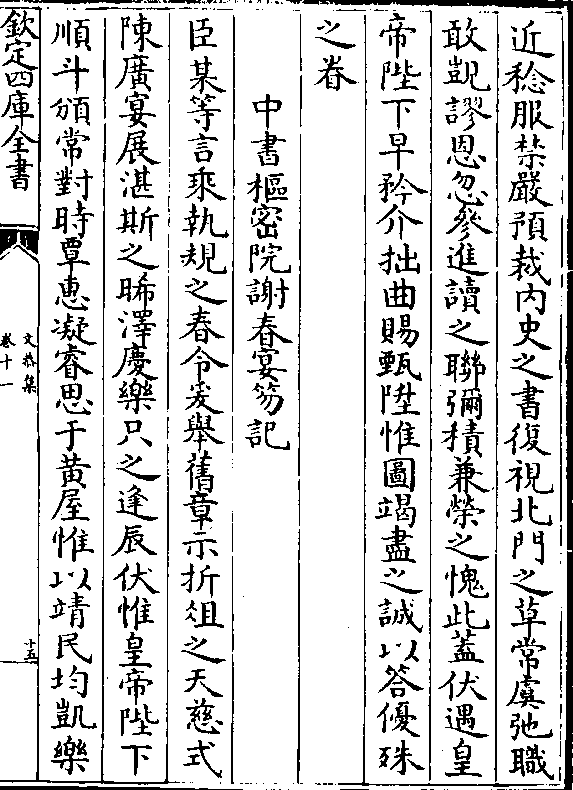 近稔服禁嚴預裁内史之書復視北門之草常虞弛職
敢覬謬恩忽參進讀之聯彌積兼榮之愧此蓋伏遇皇
帝陛下早矜介拙曲賜甄陞惟圖竭盡之誠以答優殊
之眷
中書樞密院謝春宴笏記
臣某等言乘執規之春令爰舉舊章示折俎之天慈式
陳廣宴展湛斯之晞澤慶樂只之逢辰伏惟皇帝陛下
順斗頒常對時覃惠凝睿思于黄屋惟以靖民均凱樂
欽定四庫全書
文恭集
卷十一
十五